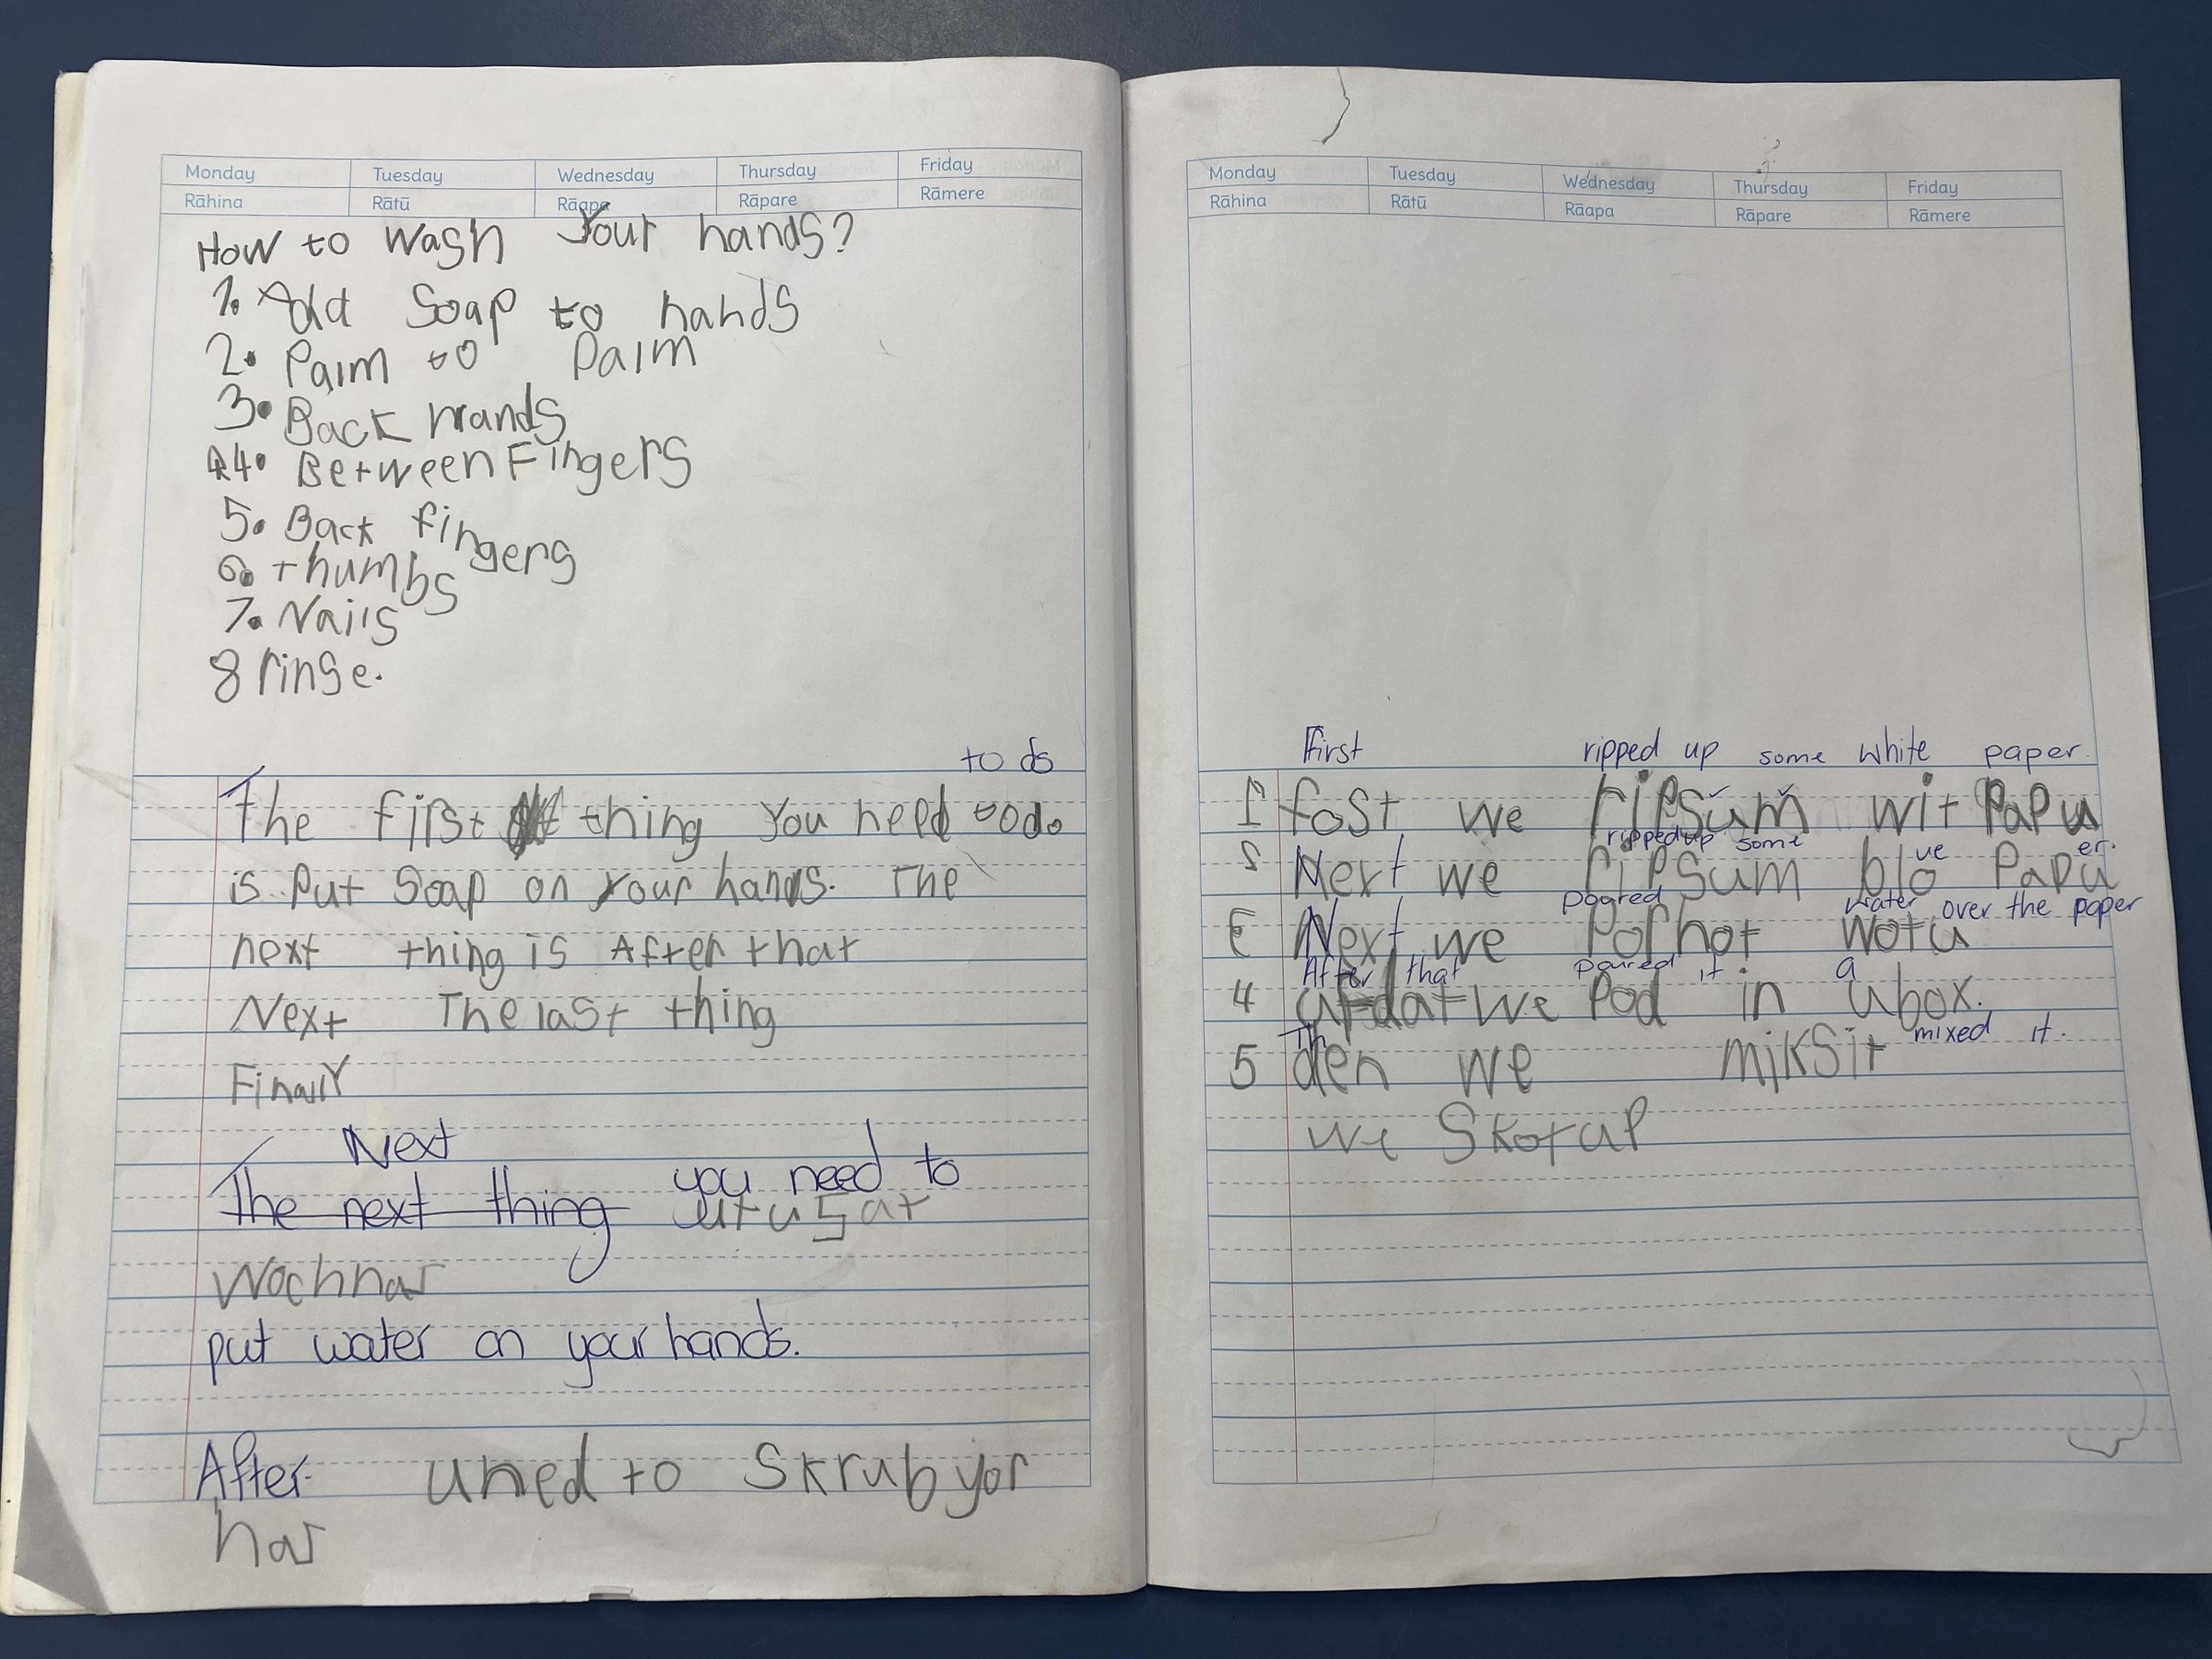 Monday Tuesday Wednesday Thursday Friday
Rāhina Rātū Rāapa Rāpare Rāmere
How to wash Your hands?
1. Add Soap to hands
2. Palm to Palm
3. Back hands
4. Between Fingers
5. Back fingers
6. thumbs
7. Nails
8 rinse.
to do
The first thing You need todo
is Put Soap on Your hands. The
next thing is After that
Next The last thing
Finally
Next
you need to
The next thing
Wochhar
put water on your hands.
After uned to Skrub yor
har
Monday Tuesday Wednesday Thursday Friday
Rāhina Rātū Rāapa Rāpare Rāmere
First ripped up some white paper.
1 fost we ripsum wit Papu
ripped up some ue er.
2 Next we ripsum blo Papu
poured water over the paper
3 Next we Porhot wotu
After that poured it a
4 afdat we Pod in ubox.
Th mixed it.
5 den we miksit
we Skotup